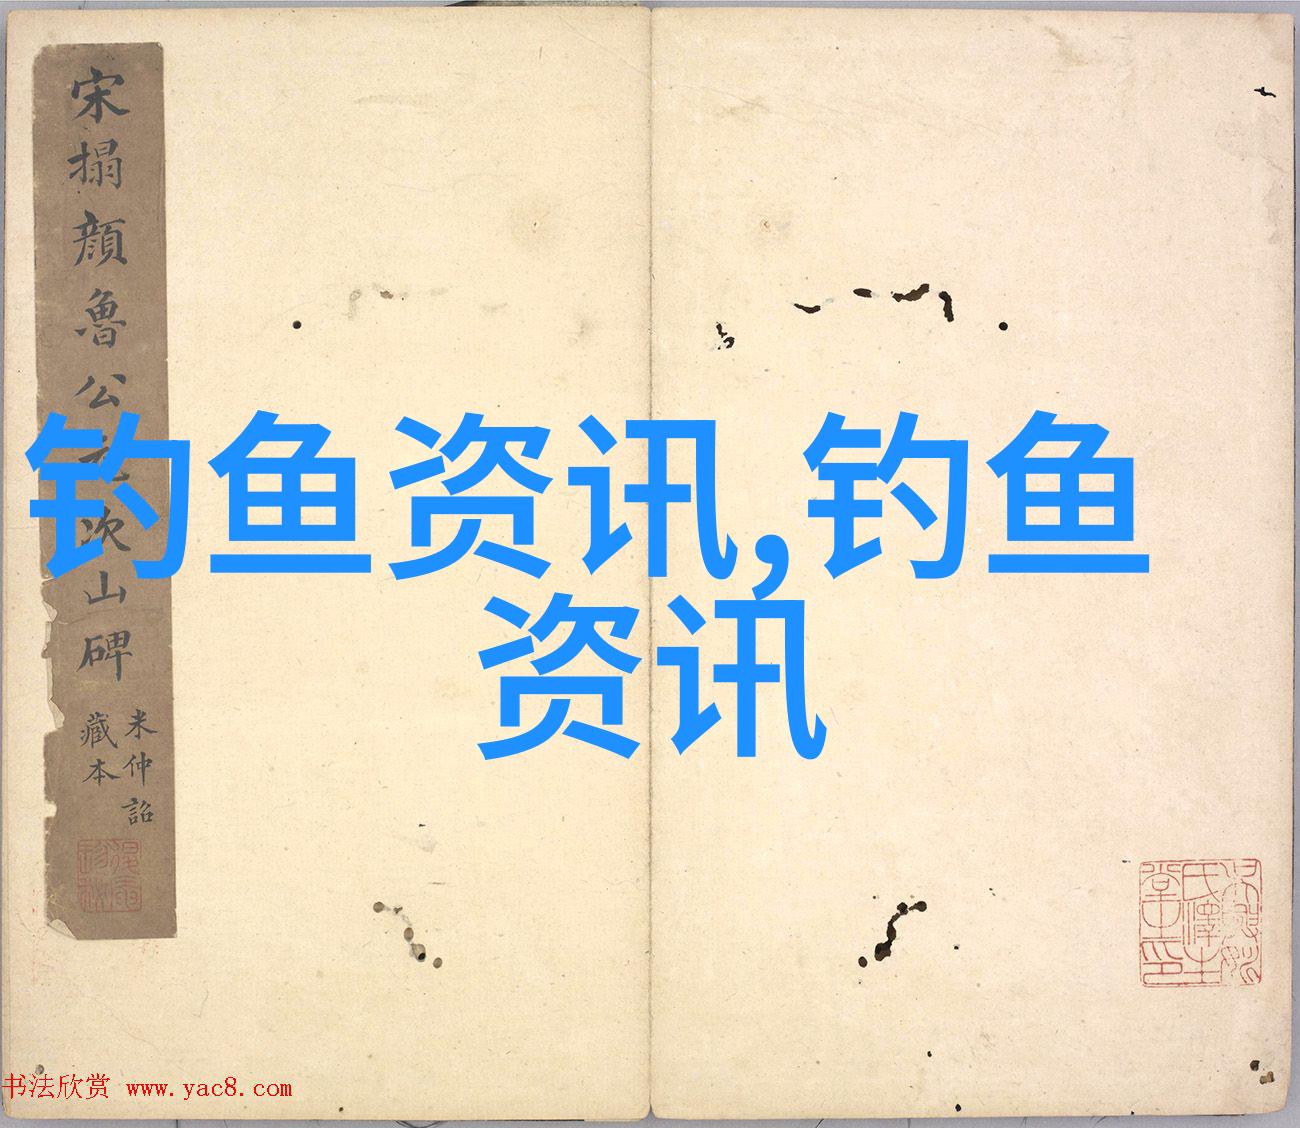 宋搨顔魯公元次山碑
米仲詔
藏本
钓鱼资讯,钓鱼
资讯
书法欣赏 www.yac8.com